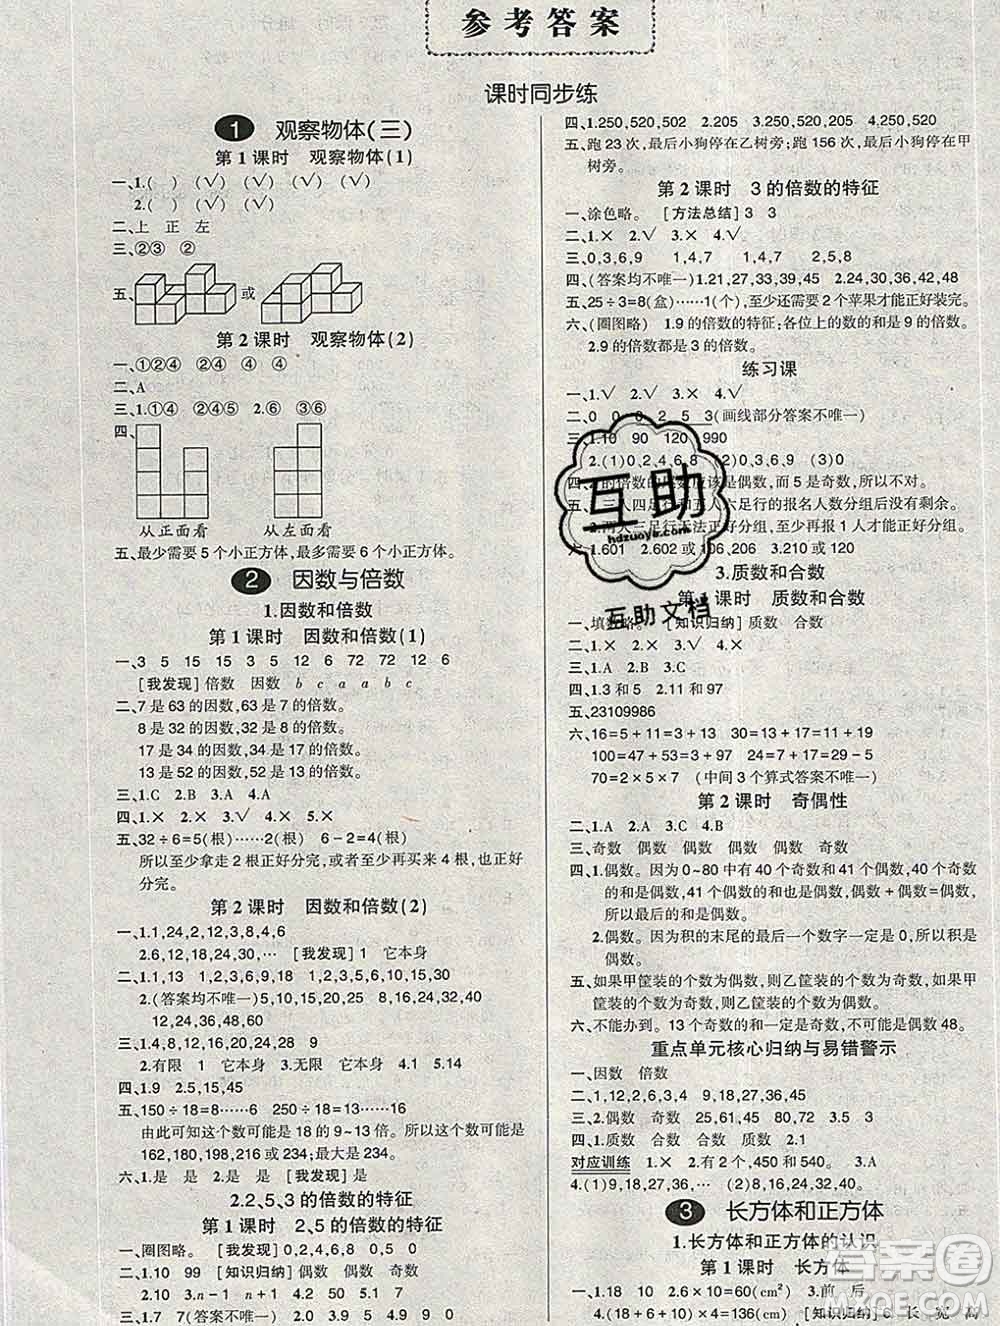 参考答案
课时同步练
1 观察物体(三)
第1课时 观察物体(1)
一、1.( ) (√) (√) (√)
2.( ) (√) (√) (√)
二、上 正 左
三、②③ ②④ ②④
五、 或
第2课时 观察物体(2)
一、①②④ ②④ ③④
二、A
三、1.①④ ②④⑤ 2.⑥ ③⑥
四、
从正面看 从左面看
五、最少需要5个小正方体,最多需要6个小正方体。
2 因数与倍数
1.因数和倍数
第1课时 因数和倍数(1)
一、3 5 15 15 3 5 12 6 72 72 12 6
[我发现]倍数 因数 b c a a b c
二、7是63的因数,63是7的倍数。
8是32的因数,32是8的倍数。
17是34的因数,34是17的倍数。
13是52的因数,52是13的倍数。
三、1.C 2.B 3.A 4.A
四、1.× 2.× 3.√ 4.× 5.×
五、32÷6=5(根)……2(根) 6-2=4(根)
所以至少拿走2根正好分完,或者至少再买来4根,也正好
分完。
第2课时 因数和倍数(2)
一、1.1,24,2,12,3,8,4,6
2.6,12,18,24,30,… [我发现]1 它本身
二、1.1,11 1,2,3,6,9,18 1,3,13,39
2.(答案均不唯一)5,10,15,20 8,16,24,32,40
12,24,36,48,60
三、1.4,8,12,16,20,24,28
2.有限 1 它本身 3.无限 它本身 4.1 5.14
四、1.9 2.5,15,45
五、150÷18=8……6 250÷18=13……16
由此可知这个数可能是18的9~13倍。所以这个数可能是
162,180,198,216或234;最大是234。
六、1.是 是 是 是 [我发现]是
2.2、5、3的倍数的特征
第1课时 2、5的倍数的特征
一、圈图略。[我发现]0,2,4,6,8 0,5 0
二、1.10 99 [知识归纳]偶数 奇数 偶数
2.10 3.n-1 n+1 n-2 n+2
三、1.7 7(答案不唯一) 2.0 3.9 4.5 5.90
四、1.250,520,502 2.205 3.205,250,520 4.250,520
五、跑23次,最后小狗停在乙树旁;跑156次,最后小狗停在甲
树旁。
第2课时 3的倍数的特征
一、涂色略。[方法总结]3 3
二、1.× 2.√ 3.× 4.√
三、0,3,6,9 1,4,7 1,4,7 2,5,8
四、(答案均不唯一)1.21,27,33,39,45 2.24,30,36,42,48
五、25÷3=8(盒)……1(个),至少还需要2个苹果才能正好装完。
六、(圈图略) 1.9的倍数的特征:各位上的数的和是9的倍数。
2.9的倍数都是3的倍数。
练习课
一、1.√ 2.√ 3.× 4.√
二、0 0 0 2 5 3(画线部分答案不唯一)
三、1.10 90 120 990
2.(1)0,2,4,6,8 (2)0,3,6,9 (3)0
应该是偶数,而5是奇数,所以不对。
五人六足行的报名人数分组后没有剩余。
正好分组,至少再报1人才能正好分组。
六、1.601 2.602或106,206 3.210或120
3.质数和合数
第1课时 质数和合数
一、填数略。[知识归纳]质数 合数
二、1.× 2.√ 3.× 4.×
三、1.A 2.B 3.A
四、1.3和5 2.11和97
五、23109986
六、16=5+11=3+13 30=13+17=11+19
100=47+53=3+97 24=7+17=29-5
70=2×5×7 (中间3个算式答案不唯一)
第2课时 奇偶性
二、1.A 2.B 3.C 4.B
三、奇数 偶数 偶数 偶数 偶数 偶数
四、1.偶数。因为0~80中有40个奇数和41个偶数,40个奇数
的和是偶数,41个偶数的和也是偶数,偶数+偶数=偶数,
所以最后的和是偶数。
2.偶数。因为积的末尾的最后一个数字一定是0,所以是偶数。
五、如果甲筐装的个数为偶数,则乙筐装的个数为奇数,如果甲
筐装的个数为奇数,则乙筐装的个数为偶数。
六、不能办到。13个奇数的和一定是奇数,不可能是偶数48。
重点单元核心归纳与易错警示
一、因数 倍数
二、1,2,3,4,6,12 9,18,27,36,45
三、2.偶数 奇数 25,61,45 80,72 3.5 3
四、1.质数 合数 合数 质数 2.1
对应训练 1.× 2.有2个,450和540。 3.A
4.(1)9,18,27,36,… (2)8,16,24,32,40。
3 长方体和正方体
1.长方体和正方体的认识
第1课时 长方体
一、1.10 18 2.6×10=60(cm²) 3.前 后
4.(18+6+10)×4=136(cm) [知识归纳]6 长 宽 高
互助
hdzuoye.com
互助文档
答案圈
MXQE.COM